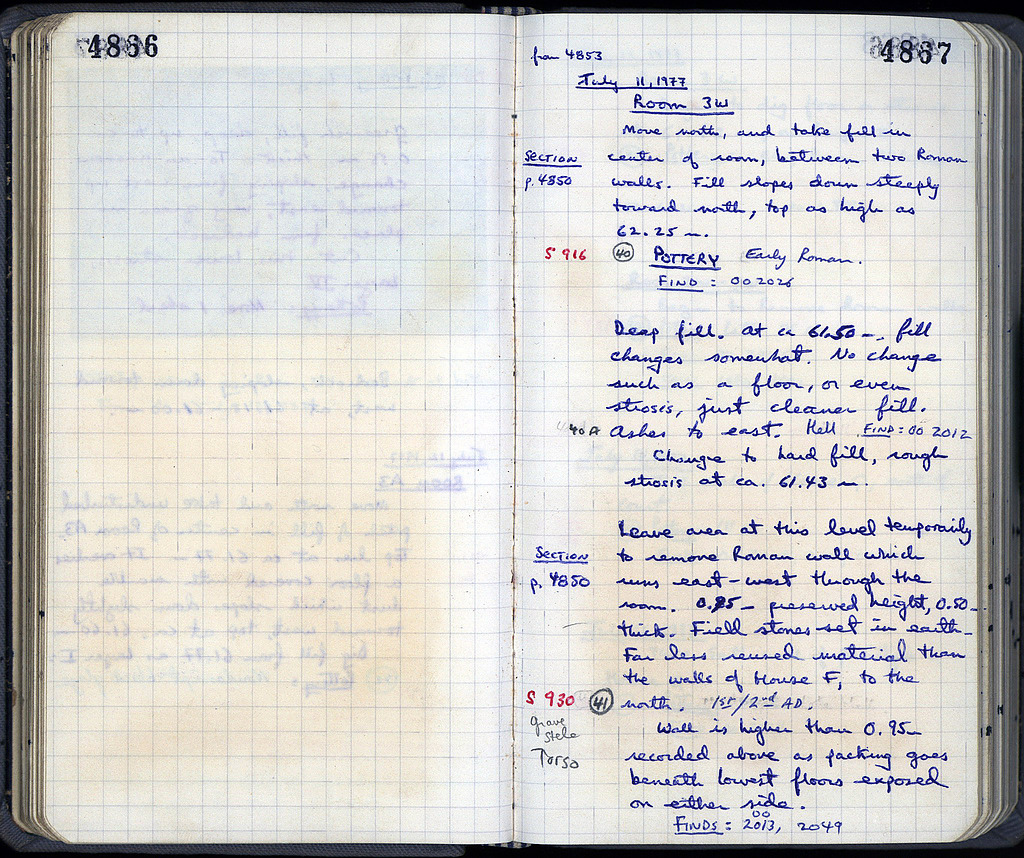 4866
4867
from 4853
July 11, 1977
Room 3W
Move north, and take fill in
SECTION center of room, between two Roman
p. 4850 walls. Fill slopes down steeply
toward north, top as high as
62.25 m.
S 916 40 POTTERY Early Roman.
FIND : 00 2026
Deep fill. At ca 61.50 m. fill
changes somewhat. No change
such as a floor, or even
strosis, just cleaner fill.
40A Ashes to east. Hell FIND = 00 2012
Change to hard fill, rough
strosis at ca. 61.43 m.
Leave area at this level temporarily
SECTION to remove Roman wall which
p. 4850 runs east-west through the
room. 0.95 m preserved height, 0.50 m
thick. Field stones set in earth.
Far less reused material than
the walls of House F, to the
S 930 41 north. 1st/2nd AD.
grave stele
Wall is higher than 0.95 m
Torso recorded above as packing goes
beneath lowest floors exposed
on either side.
00
FINDS = 2013, 2049